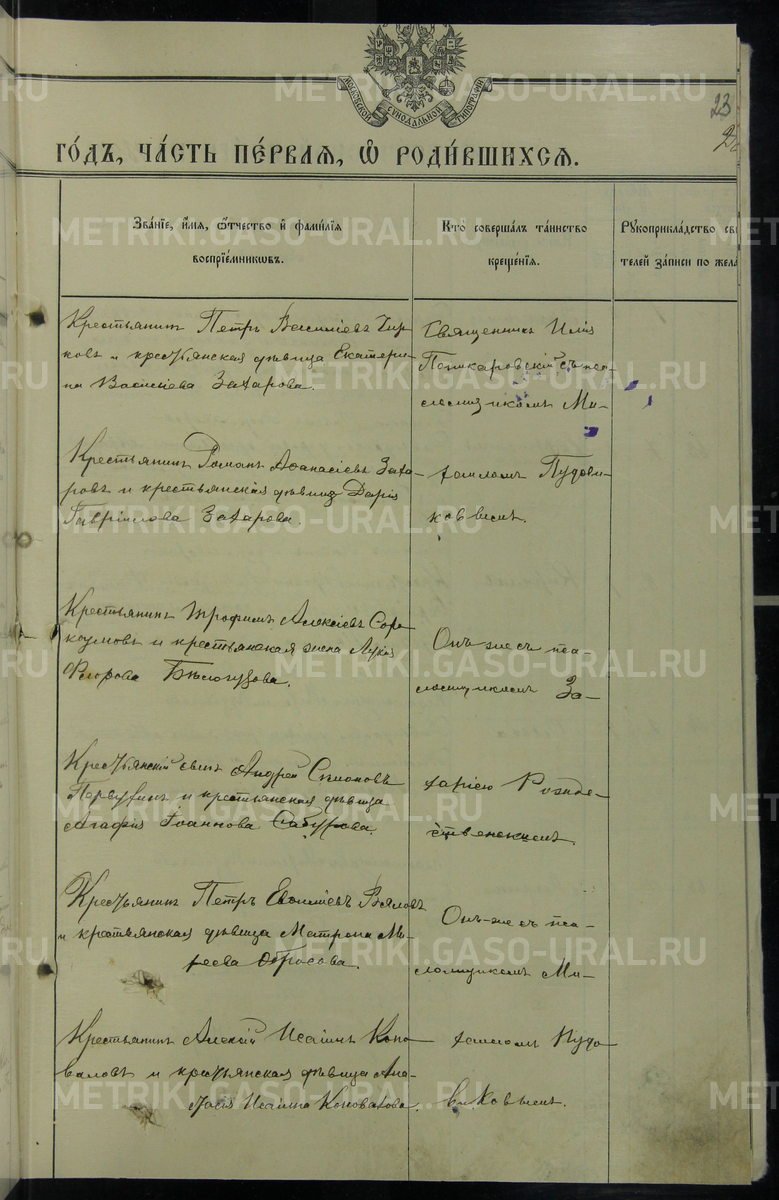 МОСКОВСКОЙ СѴНОДАЛЬНОЙ ТИПОГРАФІИ
METRIKI.GASO-URAL.RU
23
го́дъ, ча́сть пе́рвая, ѡ҆ роди́вшихсѧ.
Зва́нїе, и҆́мѧ, ѻ҆́тчество и҆ фами́лїѧ
воспрїе́мникѡвъ.
Кто̀ соверша́лъ та́инство
креще́нїѧ.
Рꙋкоприкла́дство сви
телей за́писи по жела
Крестьянинъ Петръ Василіевъ Чир-
ковъ и крестьянская дѣвица Екатери-
на Василіева Захарова.
Священникъ Илія
съ пса-
ломщикомъ Ми-
Крестьянинъ Романъ Аѳанасіевъ Заха-
ровъ и крестьянская дѣвица Дарія
Гавріилова Захарова.
хаиломъ Пудови-
ковымъ.
Крестьянинъ Трофимъ Алексіевъ Соро-
коумовъ и крестьянская жена
Флорова
Онъ-же съ пса-
ломщикомъ За-
Крестьянскій сынъ Андрей Симоновъ
Первухинъ и крестьянская дѣвица
Агафія Іоаннова Сабурова.
харіею Рожде-
ственскимъ.
Крестьянинъ Петръ Евѳиміевъ Вяловъ
и крестьянская дѣвица Матрона Ми-
хеева Обросова.
Онъ-же съ пса-
ломщикомъ Ми-
Крестьянинъ Алексій Исаіинъ Коно-
валовъ и крестьянская дѣвица Ана-
стасія Исаіина Коновалова.
хаиломъ Пудо-
виковымъ.